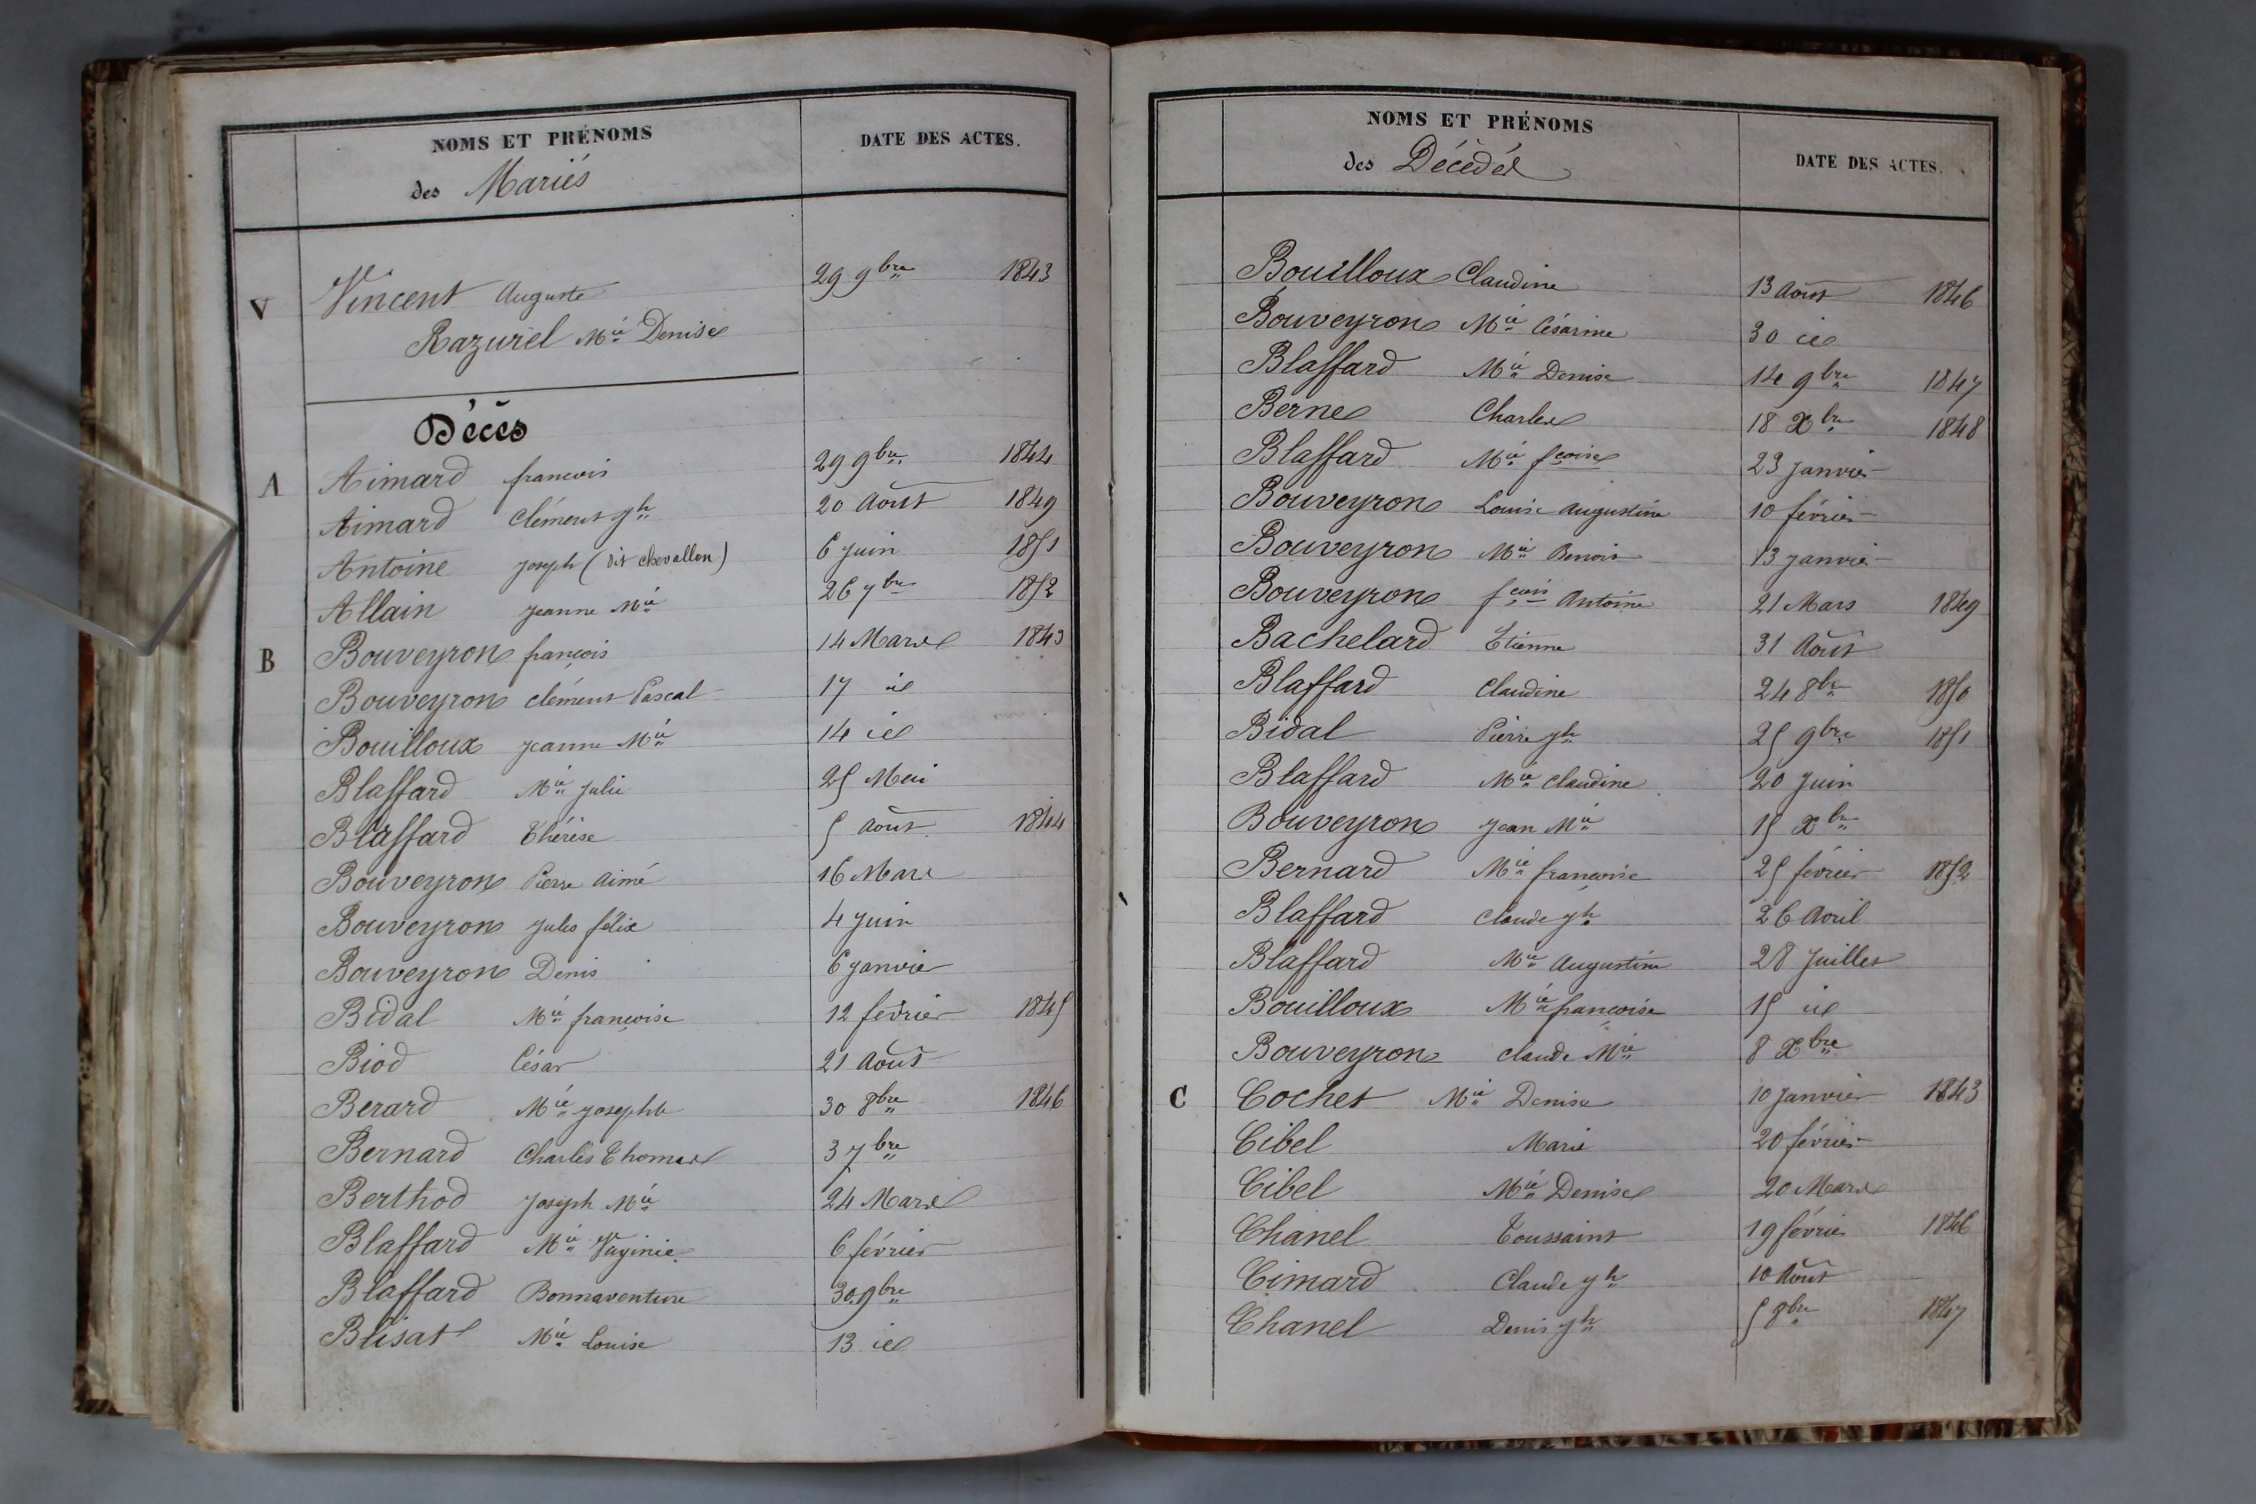 NOMS ET PRÉNOMS DATE DES ACTES.
des Mariés
V Vincent Auguste 29 9bre 1843
Razurel Mie Denise
Décès
A Aimard francois 29 9bre 1844
Aimard Clément Jh 20 Août 1849
Antoine joseph (dit chevallon) 6 juin 1851
Allain jeanne Mie 26 7bre 1852
B Bouveyron françois 14 Mars 1843
Bouveyron clément Pascal 17 id
Bouilloux jeanne Mie 14 id
Blaffard Mie julie 25 Mai
Blaffard Thérèse 5 Août 1844
Bouveyron Pierre Aimé 16 Mars
Bouveyron jules félix 4 juin
Bouveyron Denis 6 janvier
Bidal Mie françoise 12 février 1845
Biod César 21 Août
Berard Mie josephte 30 8bre 1846
Bernard Charles Thomas 3 7bre
Berthod joseph Mie 24 Mars
Blaffard Mie Virginie 6 février
Blaffard Bonnaventure 30 9bre
Blisat Mie Louise 13 id
NOMS ET PRÉNOMS DATE DES ACTES.
des Décédés
Bouilloux Claudine 13 Août 1846
Bouveyron Mie Césarine 30 id
Blaffard Mie Denise 14 9bre 1847
Berne Charles 18 Xbre 1848
Blaffard Mie fçoise 23 janvier
Bouveyron Louise Augustine 10 février
Bouveyron Mie Benoit 13 janvier
Bouveyron fçois Antoine 21 Mars 1849
Bachelard Etienne 31 Août
Blaffard Claudine 24 8bre 1850
Bidal Pierre jh 25 9bre 1851
Blaffard Mie Claudine 20 juin
Bouveyron jean Mie 15 Xbre
Bernard Mie françoise 25 février 1852
Blaffard Claude jh 26 Avril
Blaffard Mie Augustine 28 juillet
Bouilloux Mie françoise 15 id
Bouveyron claude Mie 8 Xbre
C Cochet Mie Denise 10 janvier 1843
Cibel Marie 20 février
Cibel Mie Denise 20 Mars
Chanel Toussaint 19 février 1846
Cimard Claude jh 10 Août
Chanel Denis jh 5 8bre 1847